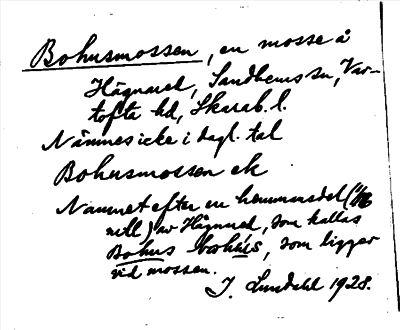 Bohusmossen, en mosse å
Hägnared, Sandhems sn, Var-
tofta hd, Skarab. l.
Nämnes icke i dagl. tal
Bohusmossen ek
Namnet efter en hemmansdel (1/16
mtl) av Hägnared, som kallas
Bohus, som ligger
vid mossen.
J. Lundahl 1928.